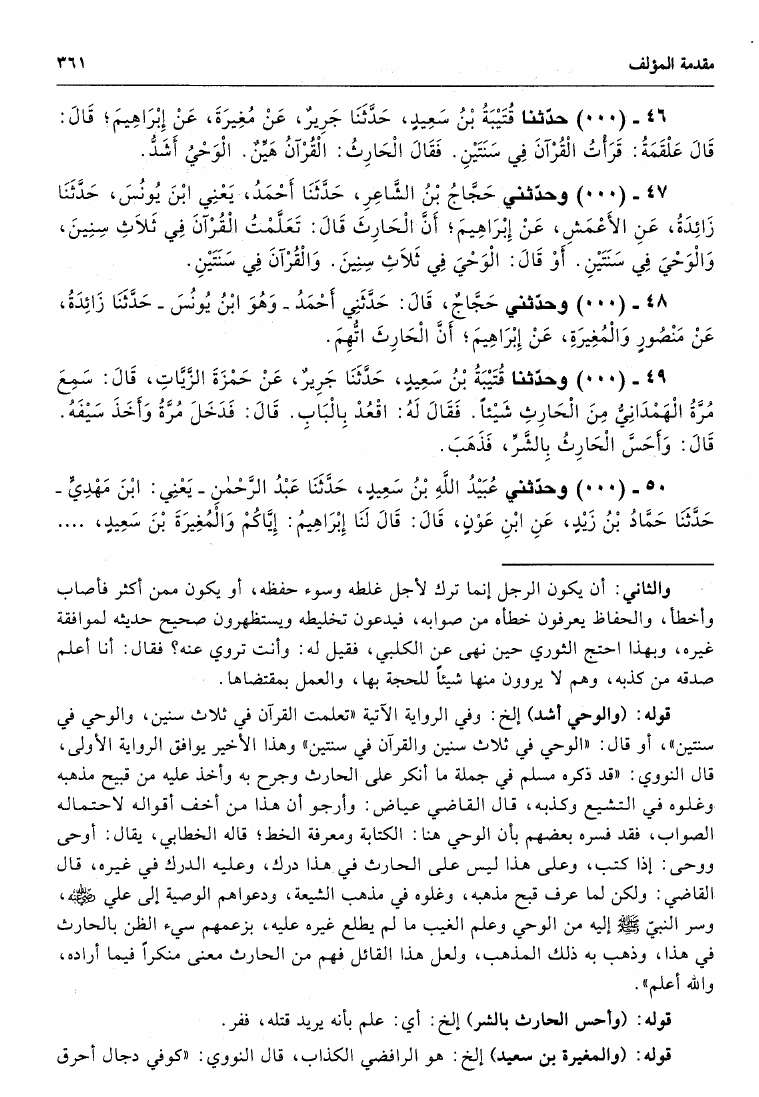 مقدمة المؤلف
٣٦١
٤٦ ـ (٠٠٠) حدّثنا قُتَيْبَةُ بْنُ سَعِيدٍ، حَدَّثَنَا جَرِيرٌ، عَنْ مُغِيرَةَ، عَنْ إِبْرَاهِيمَ؛ قَالَ:
قَالَ عَلْقَمَةُ: قَرَأْتُ الْقُرْآنَ فِي سَنَتَيْنِ. فَقَالَ الْحَارِثُ: الْقُرْآنُ هَيِّنٌ. الْوَحْيُ أَشَدُّ.
٤٧ ـ (٠٠٠) وحدّثني حَجَّاجُ بْنُ الشَّاعِرِ، حَدَّثَنَا أَحْمَدُ، يَعْنِي ابْنَ يُونُسَ، حَدَّثَنَا
زَائِدَةُ، عَنِ الأَعْمَشِ، عَنْ إِبْرَاهِيمَ؛ أَنَّ الْحَارِثَ قَالَ: تَعَلَّمْتُ الْقُرْآنَ فِي ثَلاَثِ سِنِينَ،
وَالْوَحْيَ فِي سَنَتَيْنِ. أَوْ قَالَ: الْوَحْيَ فِي ثَلاَثِ سِنِينَ. وَالْقُرْآنَ فِي سَنَتَيْنِ.
٤٨ ـ (٠٠٠) وحدّثني حَجَّاجٌ، قَالَ: حَدَّثَنِي أَحْمَدُ ـ وَهُوَ ابْنُ يُونُسَ ـ حَدَّثَنَا زَائِدَةُ،
عَنْ مَنْصُورٍ وَالْمُغِيرَةِ، عَنْ إِبْرَاهِيمَ؛ أَنَّ الْحَارِثَ اتُّهِمَ.
٤٩ ـ (٠٠٠) وحدّثنا قُتَيْبَةُ بْنُ سَعِيدٍ، حَدَّثَنَا جَرِيرٌ، عَنْ حَمْزَةَ الزَّيَّاتِ، قَالَ: سَمِعَ
مُرَّةُ الْهَمْدَانِيُّ مِنَ الْحَارِثِ شَيْئاً. فَقَالَ لَهُ: اقْعُدْ بِالْبَابِ. قَالَ: فَدَخَلَ مُرَّةُ وَأَخَذَ سَيْفَهُ.
قَالَ: وَأَحَسَّ الْحَارِثُ بِالشَّرِّ، فَذَهَبَ.
٥٠ ـ (٠٠٠) وحدّثني عُبَيْدُ اللَّهِ بْنُ سَعِيدٍ، حَدَّثَنَا عَبْدُ الرَّحْمٰنِ ـ يَعْنِي: ابْنَ مَهْدِيٍّ ـ
حَدَّثَنَا حَمَّادُ بْنُ زَيْدٍ، عَنِ ابْنِ عَوْنٍ، قَالَ: قَالَ لَنَا إِبْرَاهِيمُ: إِيَّاكُمْ وَالْمُغِيرَةَ بْنَ سَعِيدٍ، ....
والثاني: أن يكون الرجل إنما ترك لأجل غلطه وسوء حفظه، أو يكون ممن أكثر فأصاب
وأخطأ، والحفاظ يعرفون خطأه من صوابه، فيدعون تخليطه ويستظهرون صحيح حديثه لموافقة
غيره، وبهذا احتج الثوري حين نهى عن الكلبي، فقيل له: وأنت تروي عنه؟ فقال: أنا أعلم
صدقه من كذبه، وهم لا يروون منها شيئاً للحجة بها، والعمل بمقتضاها.
قوله: (والوحي أشد) إلخ: وفي الرواية الآتية «تعلمت القرآن في ثلاث سنين، والوحي في
سنتين»، أو قال: «الوحي في ثلاث سنين والقرآن في سنتين» وهذا الأخير يوافق الرواية الأولى،
قال النووي: «قد ذكره مسلم في جملة ما أنكر على الحارث وجرح به وأخذ عليه من قبيح مذهبه
وغلوه في التشيع وكذبه، قال القاضي عياض: وأرجو أن هذا من أخف أقواله لاحتماله
الصواب، فقد فسره بعضهم بأن الوحي هنا: الكتابة ومعرفة الخط؛ قاله الخطابي، يقال: أوحى
ووحى: إذا كتب، وعلى هذا ليس على الحارث في هذا درك، وعليه الدرك في غيره، قال
القاضي: ولكن لما عرف قبح مذهبه، وغلوه في مذهب الشيعة، ودعواهم الوصية إلى علي رضي الله عنه،
وسر النبيّ ﷺ إليه من الوحي وعلم الغيب ما لم يطلع غيره عليه، بزعمهم سيء الظن بالحارث
في هذا، وذهب به ذلك المذهب، ولعل هذا القائل فهم من الحارث معنى منكراً فيما أراده،
والله أعلم».
قوله: (وأحس الحارث بالشر) إلخ: أي: علم بأنه يريد قتله، ففر.
قوله: (والمغيرة بن سعيد) إلخ: هو الرافضي الكذاب، قال النووي: «كوفي دجال أحرق